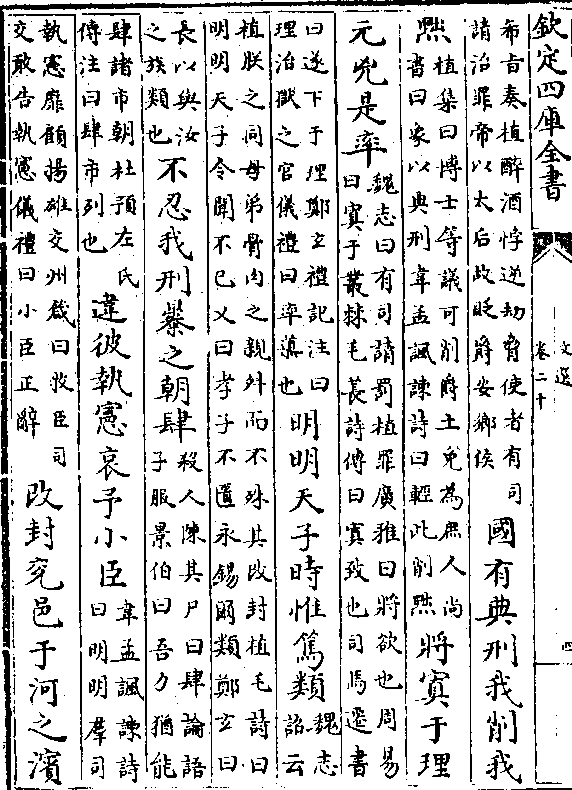 欽定四庫全書
文選
卷二十
四
希旨奏植醉酒悖逆劫脅使者有司
請治罪帝以太后故貶爵安鄉侯
國有典刑我削我
黜
植集曰博士等議可削爵土免為庶人尚
書曰象以典刑韋孟諷諫詩曰輕此削黜
將寘于理
元兇是率
魏志曰有司請罰植罪廣雅曰將欲也周易
曰寘于叢棘毛萇詩傳曰寘致也司馬遷書
曰遂下于理鄭玄禮記注曰
理治獄之官儀禮曰率導也
明明天子時惟篤類
魏志
詔云
植朕之同母弟骨肉之親外而不殊其改封植毛詩曰
明明天子令聞不已又曰孝子不匱永錫爾類鄭玄曰
長以與汝
之族類也
不忍我刑暴之朝肆
殺人陳其尸曰肆論語
子服景伯曰吾力猶能
肆諸市朝杜預左氏
傳注曰肆市列也
違彼執憲哀予小臣
韋孟諷諫詩
曰明明羣司
執憲靡顧揚雄交州箴曰牧臣司
交敢告執憲儀禮曰小臣正辭
改封兖邑于河之濱